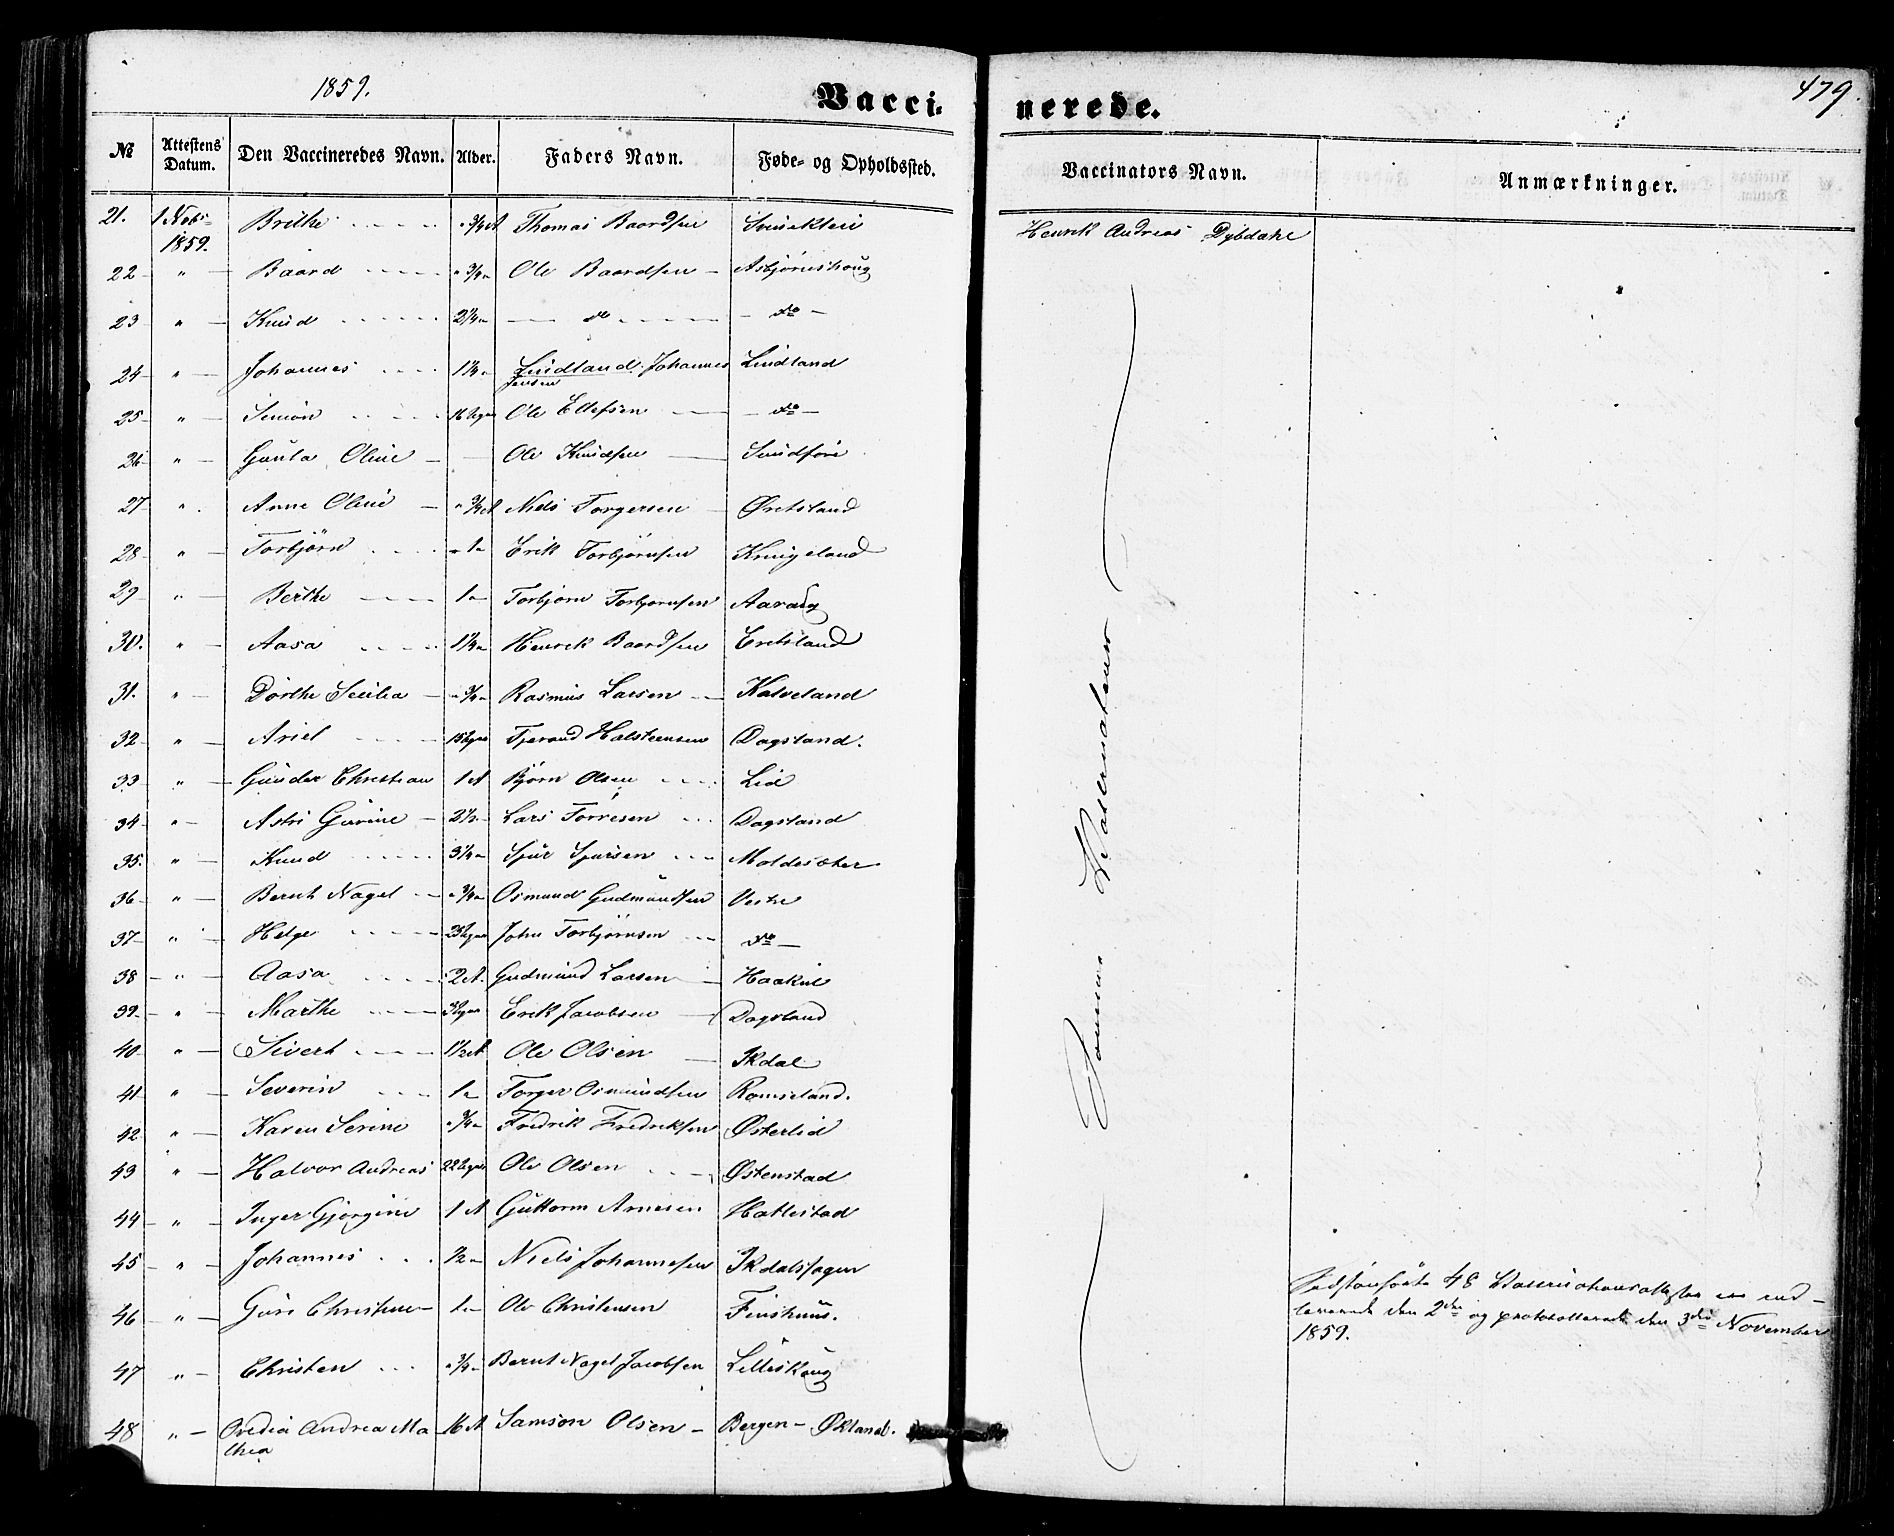 1859.
Vacci- nerede.
479.
№ Attestens Datum. Den Vaccineredes Navn. Alder. Faders Navn. Føde- og Opholdssted. Vaccinators Navn. Anmærkninger.
21. 1 Nov: 1859. Brithe " 3/4 A Thomas Baardsen Henrik Andreas Dybdahl
22 " Baard " 3/4 " Ole Baardsen Asbjørnshoug
23 " Knud 2 1/4 " do do
24 " Johannes 1 1/4 " Lindland Johannes Jensen Lindland
25 " Simon 16 Uger Ole Ellefsen do
26 " Gunla Oline Ole Knudsen Sundføri
27 " Anne Oline " 3/4 A Niels Torgersen Øretsland
28 " Torbjørn " 1 " Erik Torbjørnsen Kringeland
29 " Berthe 1 " Torbjørn Torbjørnsen Aaraug
30. " Aasa 1 1/4 " Henrik Baardsen Eretsland
31. " Dorthe Secilia " 3/4 " Rasmus Larsen Kalveland
32 " Ariel 15 Uger Tjerand Halsteensen Dagsland.
33 " Gunder Christian 1 A Bjørn Olsen Lid
34 " Astri Gurine 2 1/2 " Lars Torresen Dagsland
35. " Knud 3 1/4 " Sjur Sjursen Moldesæter
36 " Bernt Nagel " 3/4 " Osmund Gudmundsen Vestre
37 " Helge 23 Uger John Torbjørnsen do
38 " Aasa 2 A. Gudmund Larsen Haakul
39. " Marthe Uger Erik Jacobsen Dagsland
40 " Sivert 1 1/2 A Ole Olsen Ikdal
41 " Severin 1 " Torger Osmundsen Romseland.
42 " Karen Serine " 3/4 " Fredrik Fredriksen Østerlid
43 " Halvor Andreas 22 Uger Ole Olsen Østenstad
44 " Inger Gjørgine 1 A Guttorm Arnesen Hattestad
45 " Johannes 1/2 " Niels Johannesen Ikdalshagen
46 " Guri Christine 1 " Ole Christensen Finshuus.
47 " Christen " 3/4 " Bernt Nagel Jacobsen Lilleskoug
48 " Ovedia Andrea Mathea 16 A Samson Olsen Bergen - Økland.
Vaccinateur
48 Vaccinationsattester ere ind-
leverede den 2den og protokollerede den 3die November
1859.